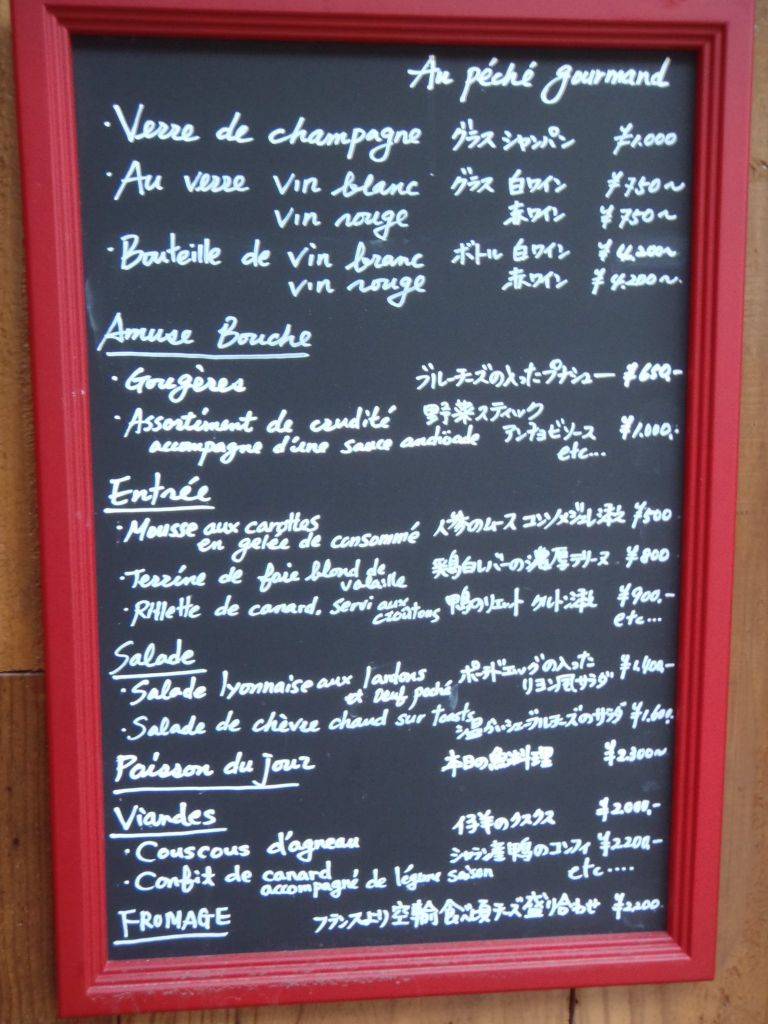 Au péché gourmand
・Verre de champagne グラス シャンパン ¥1.000
・Au verre vin blanc グラス 白ワイン ¥750〜
vin rouge 赤ワイン ¥750〜
・Bouteille de vin branc ボトル 白ワイン ¥4,200〜
vin rouge 赤ワイン ¥4,200〜
Amuse Bouche
・Gougères ブルーチーズの入ったプチシュー ¥650.-
・Assortiment de crudité 野菜スティック
accompagne d'une sauce anchöade アンチョビソース ¥1.000.-
etc...
Entrée
・Mousse aux carottes 人参のムース コンソメジュレ添え ¥500
en gelée de consommé
・Terrine de foie blond de 鶏白レバーの濃厚テリーヌ ¥800
volaille
・Rillette de canard. servi aux 鴨のリエット クルトン添え ¥900.-
croûtons etc...
Salade
・Salade lyonnaise aux lardons ポーチドエッグの入った ¥1.400.-
et oeuf poché リヨン風サラダ
・Salade de chèvre chaud sur toasts 温かいシェーブルチーズのサラダ ¥1.600.
Poisson du jour 本日の魚料理 ¥2.300〜
Viandes
・Couscous d'agneau 仔羊のクスクス ¥2.000.-
・Confit de canard シャラン産鴨のコンフィ ¥2200.-
accompagné de légume saison etc....
FROMAGE フランスより空輸食べ頃チーズ盛り合わせ ¥2,200